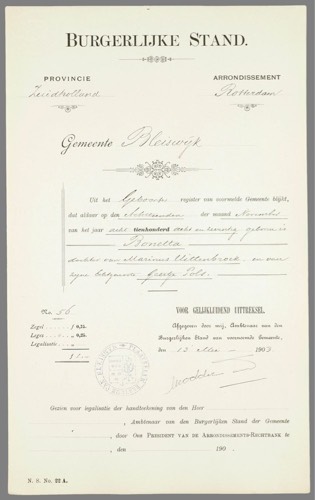 BURGERLIJKE STAND.
PROVINCIE
Zuidholland
ARRONDISSEMENT
Rotterdam
Gemeente Bleiswijk
Uit het Geboorte register van voormelde Gemeente blijkt,
dat aldaar op den der maand November
van het jaar acht tienhonderd acht en twintig geboren is
Bonella
dochter van Marinus Uittenbroek en van
zijne echtgenoote Pols.
No. 56
Zegel ƒ 0,25.
Leges „ 0,50.
Legalisatie „
VOOR GELIJKLUIDEND UITTREKSEL.
Afgegeven door mij, Ambtenaar van den
Burgerlijken Stand van voornoemde Gemeente,
den 12 Mei 1903.
Gezien voor legalisatie der handteekening van den Heer
, Ambtenaar van den Burgerlijken Stand der Gemeente
door Ons PRESIDENT VAN DE ARRONDISSEMENTS-RECHTBANK te
den 190 .
N. S. No. 22 A.